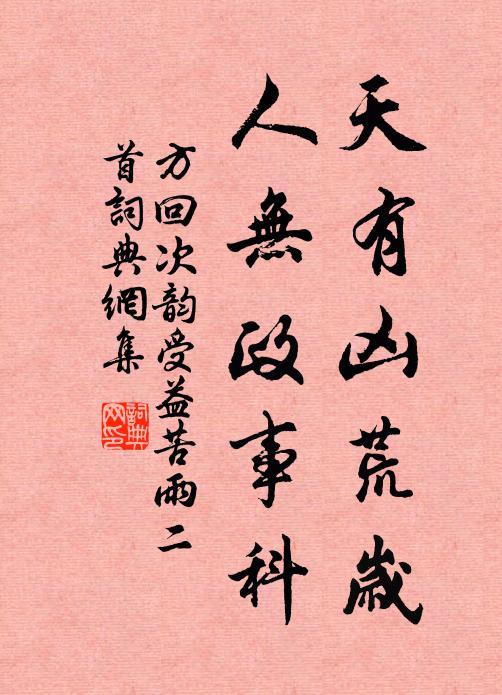 天有凶荒歲
人無政事科
方回次韵受益苦雨二
首詞典網集
詞典
网印